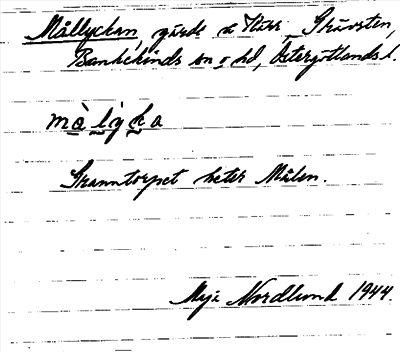 Mållyckan, gärde å Västra Skrävsten,
Bankekinds sn o hd, Östergötlands l.
målyka
Granntorpet heter Målen.
Maja Nordlund 1944.